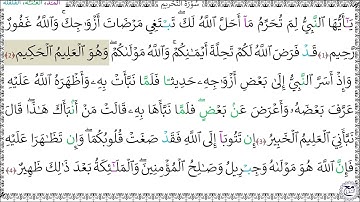 سورة التحريم
يَٰٓأَيُّهَا ٱلنَّبِيُّ لِمَ تُحَرِّمُ مَآ أَحَلَّ ٱللَّهُ لَكَ تَبْتَغِي مَرْضَاتَ أَزْوَٰجِكَ وَٱللَّهُ غَفُورٌ
رَّحِيمٌ (1) قَدْ فَرَضَ ٱللَّهُ لَكُمْ تَحِلَّةَ أَيْمَٰنِكُمْ وَٱللَّهُ مَوْلَىٰكُمْ وَهُوَ ٱلْعَلِيمُ ٱلْحَكِيمُ (2)
وَإِذْ أَسَرَّ ٱلنَّبِيُّ إِلَىٰ بَعْضِ أَزْوَٰجِهِۦ حَدِيثًا فَلَمَّا نَبَّأَتْ بِهِۦ وَأَظْهَرَهُ ٱللَّهُ عَلَيْهِ
عَرَّفَ بَعْضَهُۥ وَأَعْرَضَ عَنۢ بَعْضٍ فَلَمَّا نَبَّأَهَا بِهِۦ قَالَتْ مَنْ أَنۢبَأَكَ هَٰذَا قَالَ
نَبَّأَنِيَ ٱلْعَلِيمُ ٱلْخَبِيرُ (3) إِن تَتُوبَآ إِلَى ٱللَّهِ فَقَدْ صَغَتْ قُلُوبُكُمَا وَإِن تَظَٰهَرَا عَلَيْهِ
فَإِنَّ ٱللَّهَ هُوَ مَوْلَىٰهُ وَجِبْرِيلُ وَصَٰلِحُ ٱلْمُؤْمِنِينَ وَٱلْمَلَٰٓئِكَةُ بَعْدَ ذَٰلِكَ ظَهِيرٌ (4)